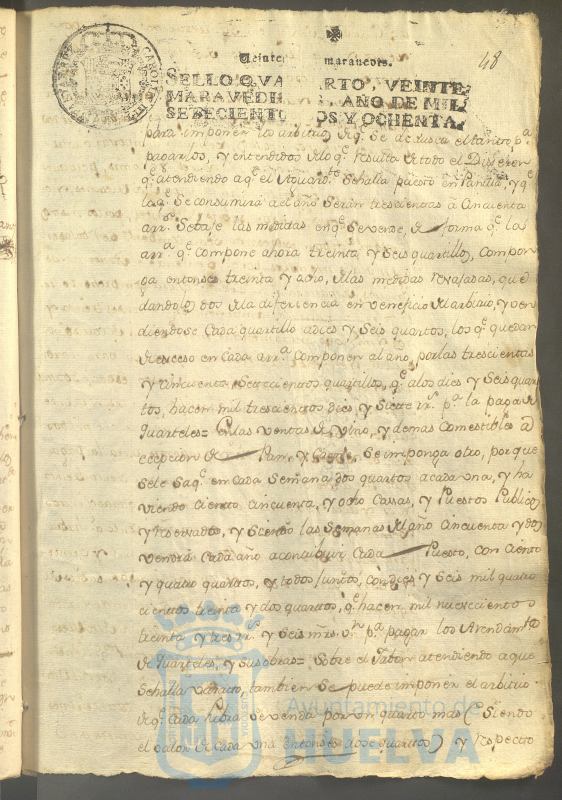 48
Veinte maravedis.
SELLO QVARTO, VEINTE
MARAVEDIS, AÑO DE MIL
SETECIENTOS Y OCHENTA.
para imponer los arbitrios,
pagarlos, y entendidos resulto todo el
q.e atendiendo a q.e el se halla puesto en y q.e
la q.e se consumirá al año serán trescientas a cincuenta
arr.s se baje las medidas en q.e se vende, de forma q.e la
arr.a q.e compone ahora treinta y seis quartillos, compon
ga entonces treinta y ocho, las medidas revajadas, que
dando los dos la diferencia en veneficio del arbitrio, y ven
diendose cada quartillo a dies y seis quartos, los q.e quedan
de exceso en cada arr.a componen al año, por las trescientas
y cincuenta setecientos quartillos, q.e a los dies y seis quar
tos, hacen mil trescientos dies y siette r.s p.a la paga de
quarteles= En las ventas de vino, y demas comestibles a
ecepcion de Pan, y Carne, se imponga otro, por que
se le saq.e en cada semana dos quartos a cada una, y ha
viendo ciento cincuenta, y ocho casas, y Puestos Publicos
y reservados, y siendo las semanas del año cincuenta y dos
vendrá cada año a contribuir cada Puesto, con ciento
y quatro quartos, y todos juntos, con dies y seis mil quatro
cientos treinta y dos quartos, q.e hacen mil nuevecientos
treinta y tres r.s y seis mrs. v.n p.a pagar los Arrendam.tos
de quarteles, y sus obras= Sobre el Jabon atendiendo a que
se halla varato, tambien se puede imponer el arbitrio
de q.e cada libra se venda por un quarto mas (siendo
el valor de cada una entonces dose quartos) y respecto
Ayuntamiento de
HUELVA